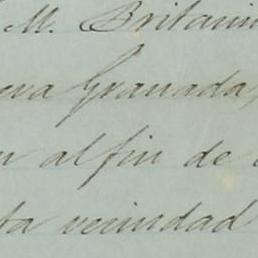 M. Britani
eva Granada,
n al fin de
ta vecindad